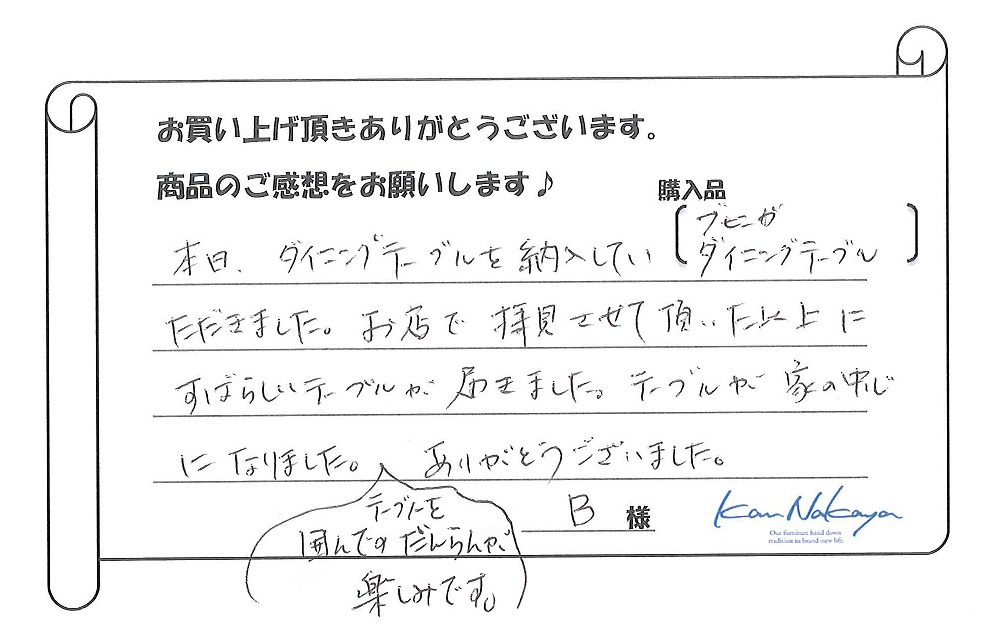 お買い上げ頂きありがとうございます。
商品のご感想をお願いします♪
購入品
ブビンガ
ダイニングテーブル
本日、ダイニングテーブルを納入してい
ただきました。お店で拝見させて頂いた以上に
すばらしいテーブルが届きました。テーブルが家の中心
になりました。ありがとうございました。
テーブルを
囲んでのだんらんが、
楽しみです。
B 様
Kan Nakaya
Our furniture hand down
tradition to brand-new life.